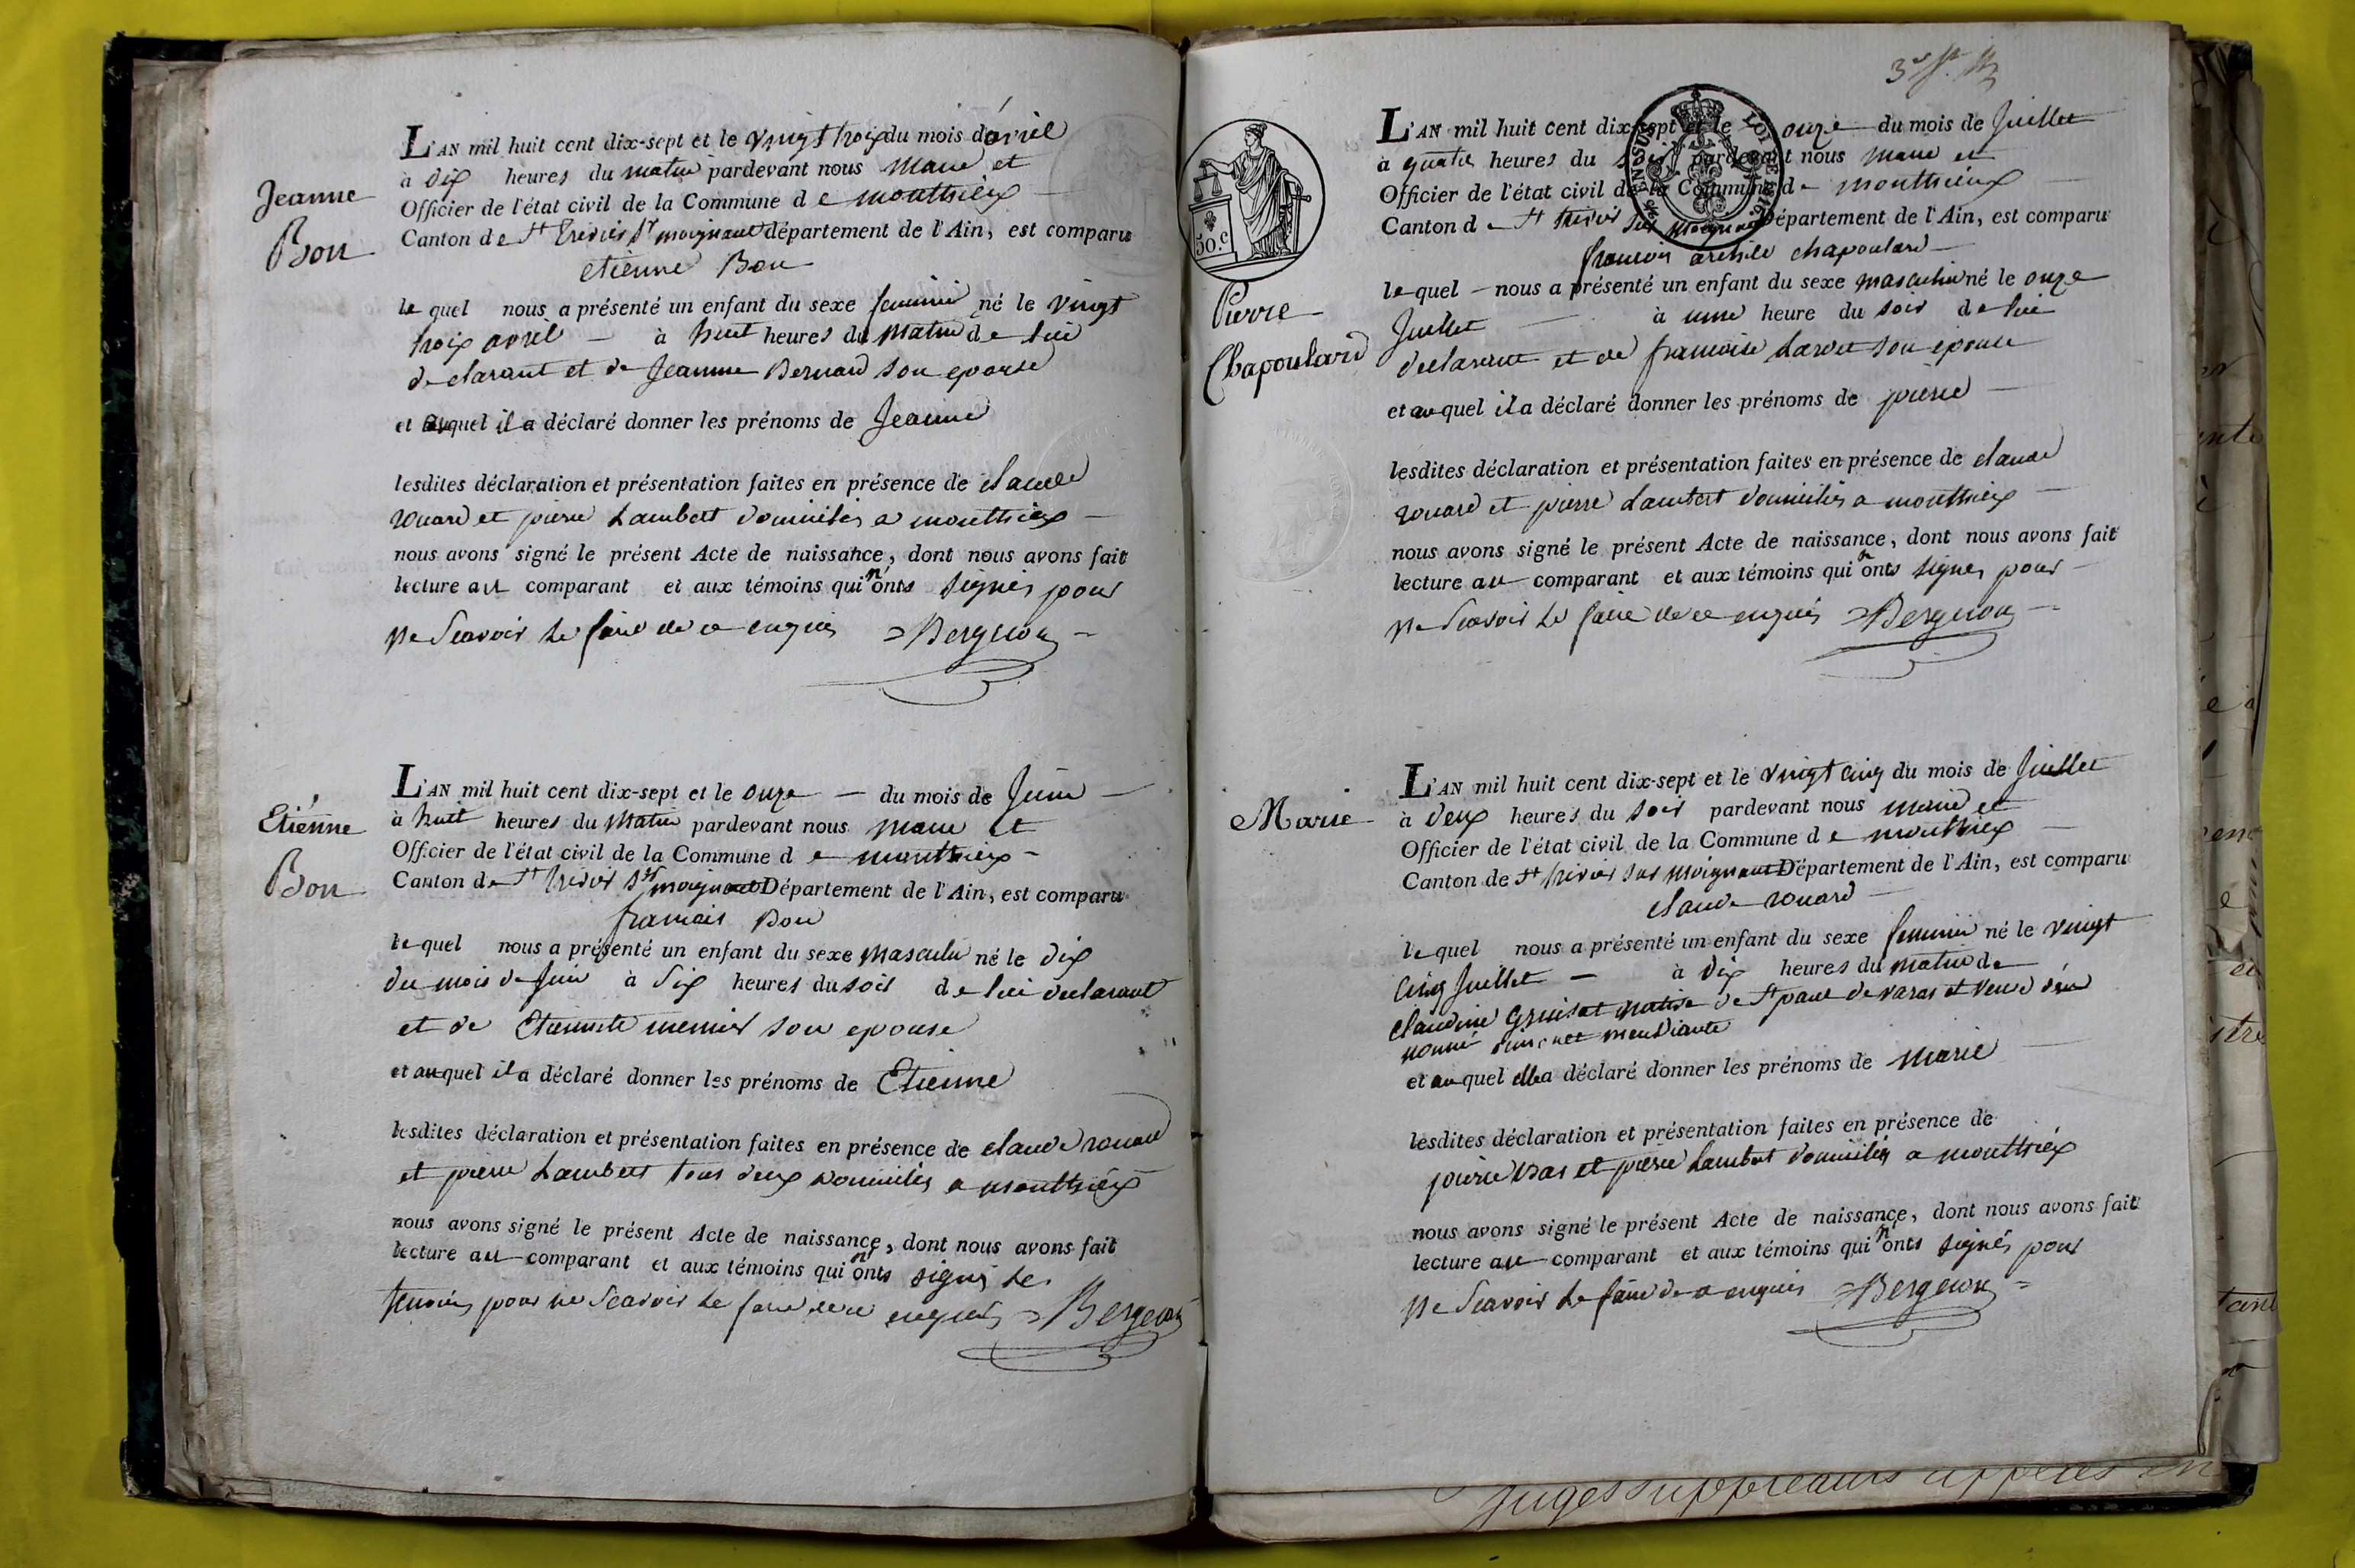 Jeanne
Bon
L'AN mil huit cent dix-sept et le vingt trois du mois d'avril
à dix heures du matin pardevant nous maire et
Officier de l'état civil de la Commune de monthieux
Canton de St trivier sr moignant département de l'Ain, est comparu
etienne Bon
le quel nous a présenté un enfant du sexe feminin né le vingt
trois avril à huit heures du matin de lui
declarant et de Jeanne Bernard son epouse
et auquel il a déclaré donner les prénoms de Jeanne
lesdites déclaration et présentation faites en présence de claude
rouard et pierre Lambert domiciliés a monthieux
nous avons signé le présent Acte de naissance, dont nous avons fait
lecture au comparant et aux témoins qui n'onts signés pour
ne Scavoir le faire de ce enquis Bergeron
Etienne
Bon
L'AN mil huit cent dix-sept et le onze du mois de Juin
à huit heures du matin pardevant nous maire et
Officier de l'état civil de la Commune de monthieux
Canton de St trivier sr moignant Département de l'Ain, est comparu
francois Bon
le quel nous a présenté un enfant du sexe masculin né le dix
du mois de Juin à six heures du soir de lui declarant
et de Etiennette mernier son epouse
et auquel il a déclaré donner les prénoms de Etienne
lesdites déclaration et présentation faites en présence de claude rouard
et pierre Lambert tous deux domiciliés a monthieux
nous avons signé le présent Acte de naissance, dont nous avons fait
lecture au comparant et aux témoins qui n'onts signés les
temoins pour ne Scavoir le faire de ce enquis Bergeron
3e
50.c
LOI DE 1816
Pierre
Chapoulard
L'AN mil huit cent dix-sept et le onze du mois de Juillet
à quatre heures du soir pardevant nous maire et
Officier de l'état civil de la Commune de monthieux
Canton de St trivier sur moignant Département de l'Ain, est comparu
francois chapoulard
le quel nous a présenté un enfant du sexe masculin né le onze
Juillet à une heure du soir de lui
declarant et de francoise son epouse
et auquel il a déclaré donner les prénoms de pierre
lesdites déclaration et présentation faites en présence de claude
rouard et pierre Lambert domiciliés a monthieux
nous avons signé le présent Acte de naissance, dont nous avons fait
lecture au comparant et aux témoins qui n'onts signés pour
ne Scavoir le faire de ce enquis Bergeron
Marie
L'AN mil huit cent dix-sept et le vingt cinq du mois de Juillet
à deux heures du soir pardevant nous maire et
Officier de l'état civil de la Commune de monthieux
Canton de St trivier sur moignant Département de l'Ain, est comparu
claude rouard
le quel nous a présenté un enfant du sexe feminin né le vingt
cinq Juillet à dix heures du matin de
claudine native de St paul de varas et veuve d'un
nommé mendiante
et auquel elle a déclaré donner les prénoms de marie
lesdites déclaration et présentation faites en présence de
pierre et pierre Lambert domiciliés a monthieux
nous avons signé le présent Acte de naissance, dont nous avons fait
lecture au comparant et aux témoins qui n'onts signés pour
ne Scavoir le faire de ce enquis Bergeron